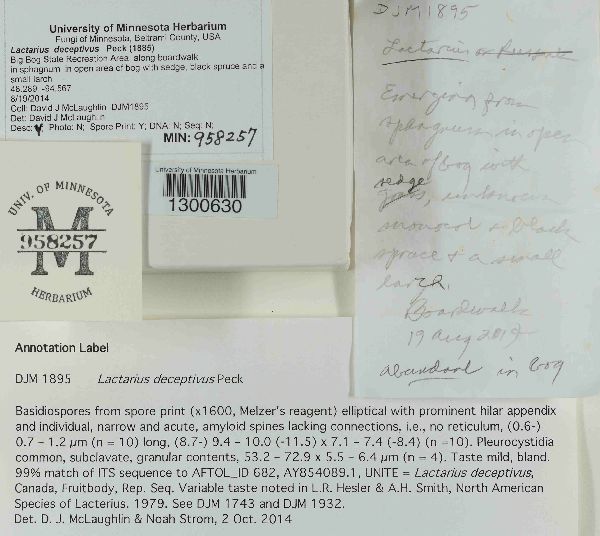 University of Minnesota Herbarium
Fungi of Minnesota, Beltrami County, USA
Lactarius deceptivus Peck (1885)
Big Bog State Recreation Area, along boardwalk
in sphagnum in open area of bog with sedge, black spruce and a
small larch
48.289 -94.567
8/19/2014
Coll: David J McLaughlin DJM1895
Det: David J McLaughlin
Desc: Y; Photo: N; Spore Print: Y; DNA: N; Seq: N;
MIN: 958257
University of Minnesota Herbarium
1300630
UNIV. OF MINNESOTA
M
958257
HERBARIUM
DJM1895
Lactarius or Russula
Emerging from
sphagnum in open
area of bog with
sedge, unknown
monocot & black
spruce & a small
larch.
Boardwalk
19 Aug 2014
abundant in bog
Annotation Label
DJM 1895 Lactarius deceptivus Peck
Basidiospores from spore print (x1600, Melzer's reagent) elliptical with prominent hilar appendix
and individual, narrow and acute, amyloid spines lacking connections, i.e., no reticulum, (0.6-)
0.7 – 1.2 µm (n = 10) long, (8.7-) 9.4 – 10.0 (-11.5) x 7.1 – 7.4 (-8.4) (n =10). Pleurocystidia
common, subclavate, granular contents, 53.2 – 72.9 x 5.5 – 6.4 µm (n = 4). Taste mild, bland.
99% match of ITS sequence to AFTOL_ID 682, AY854089.1, UNITE = Lactarius deceptivus,
Canada, Fruitbody, Rep. Seq. Variable taste noted in L.R. Hesler & A.H. Smith, North American
Species of Lacterius. 1979. See DJM 1743 and DJM 1932.
Det. D. J. McLaughlin & Noah Strom, 2 Oct. 2014